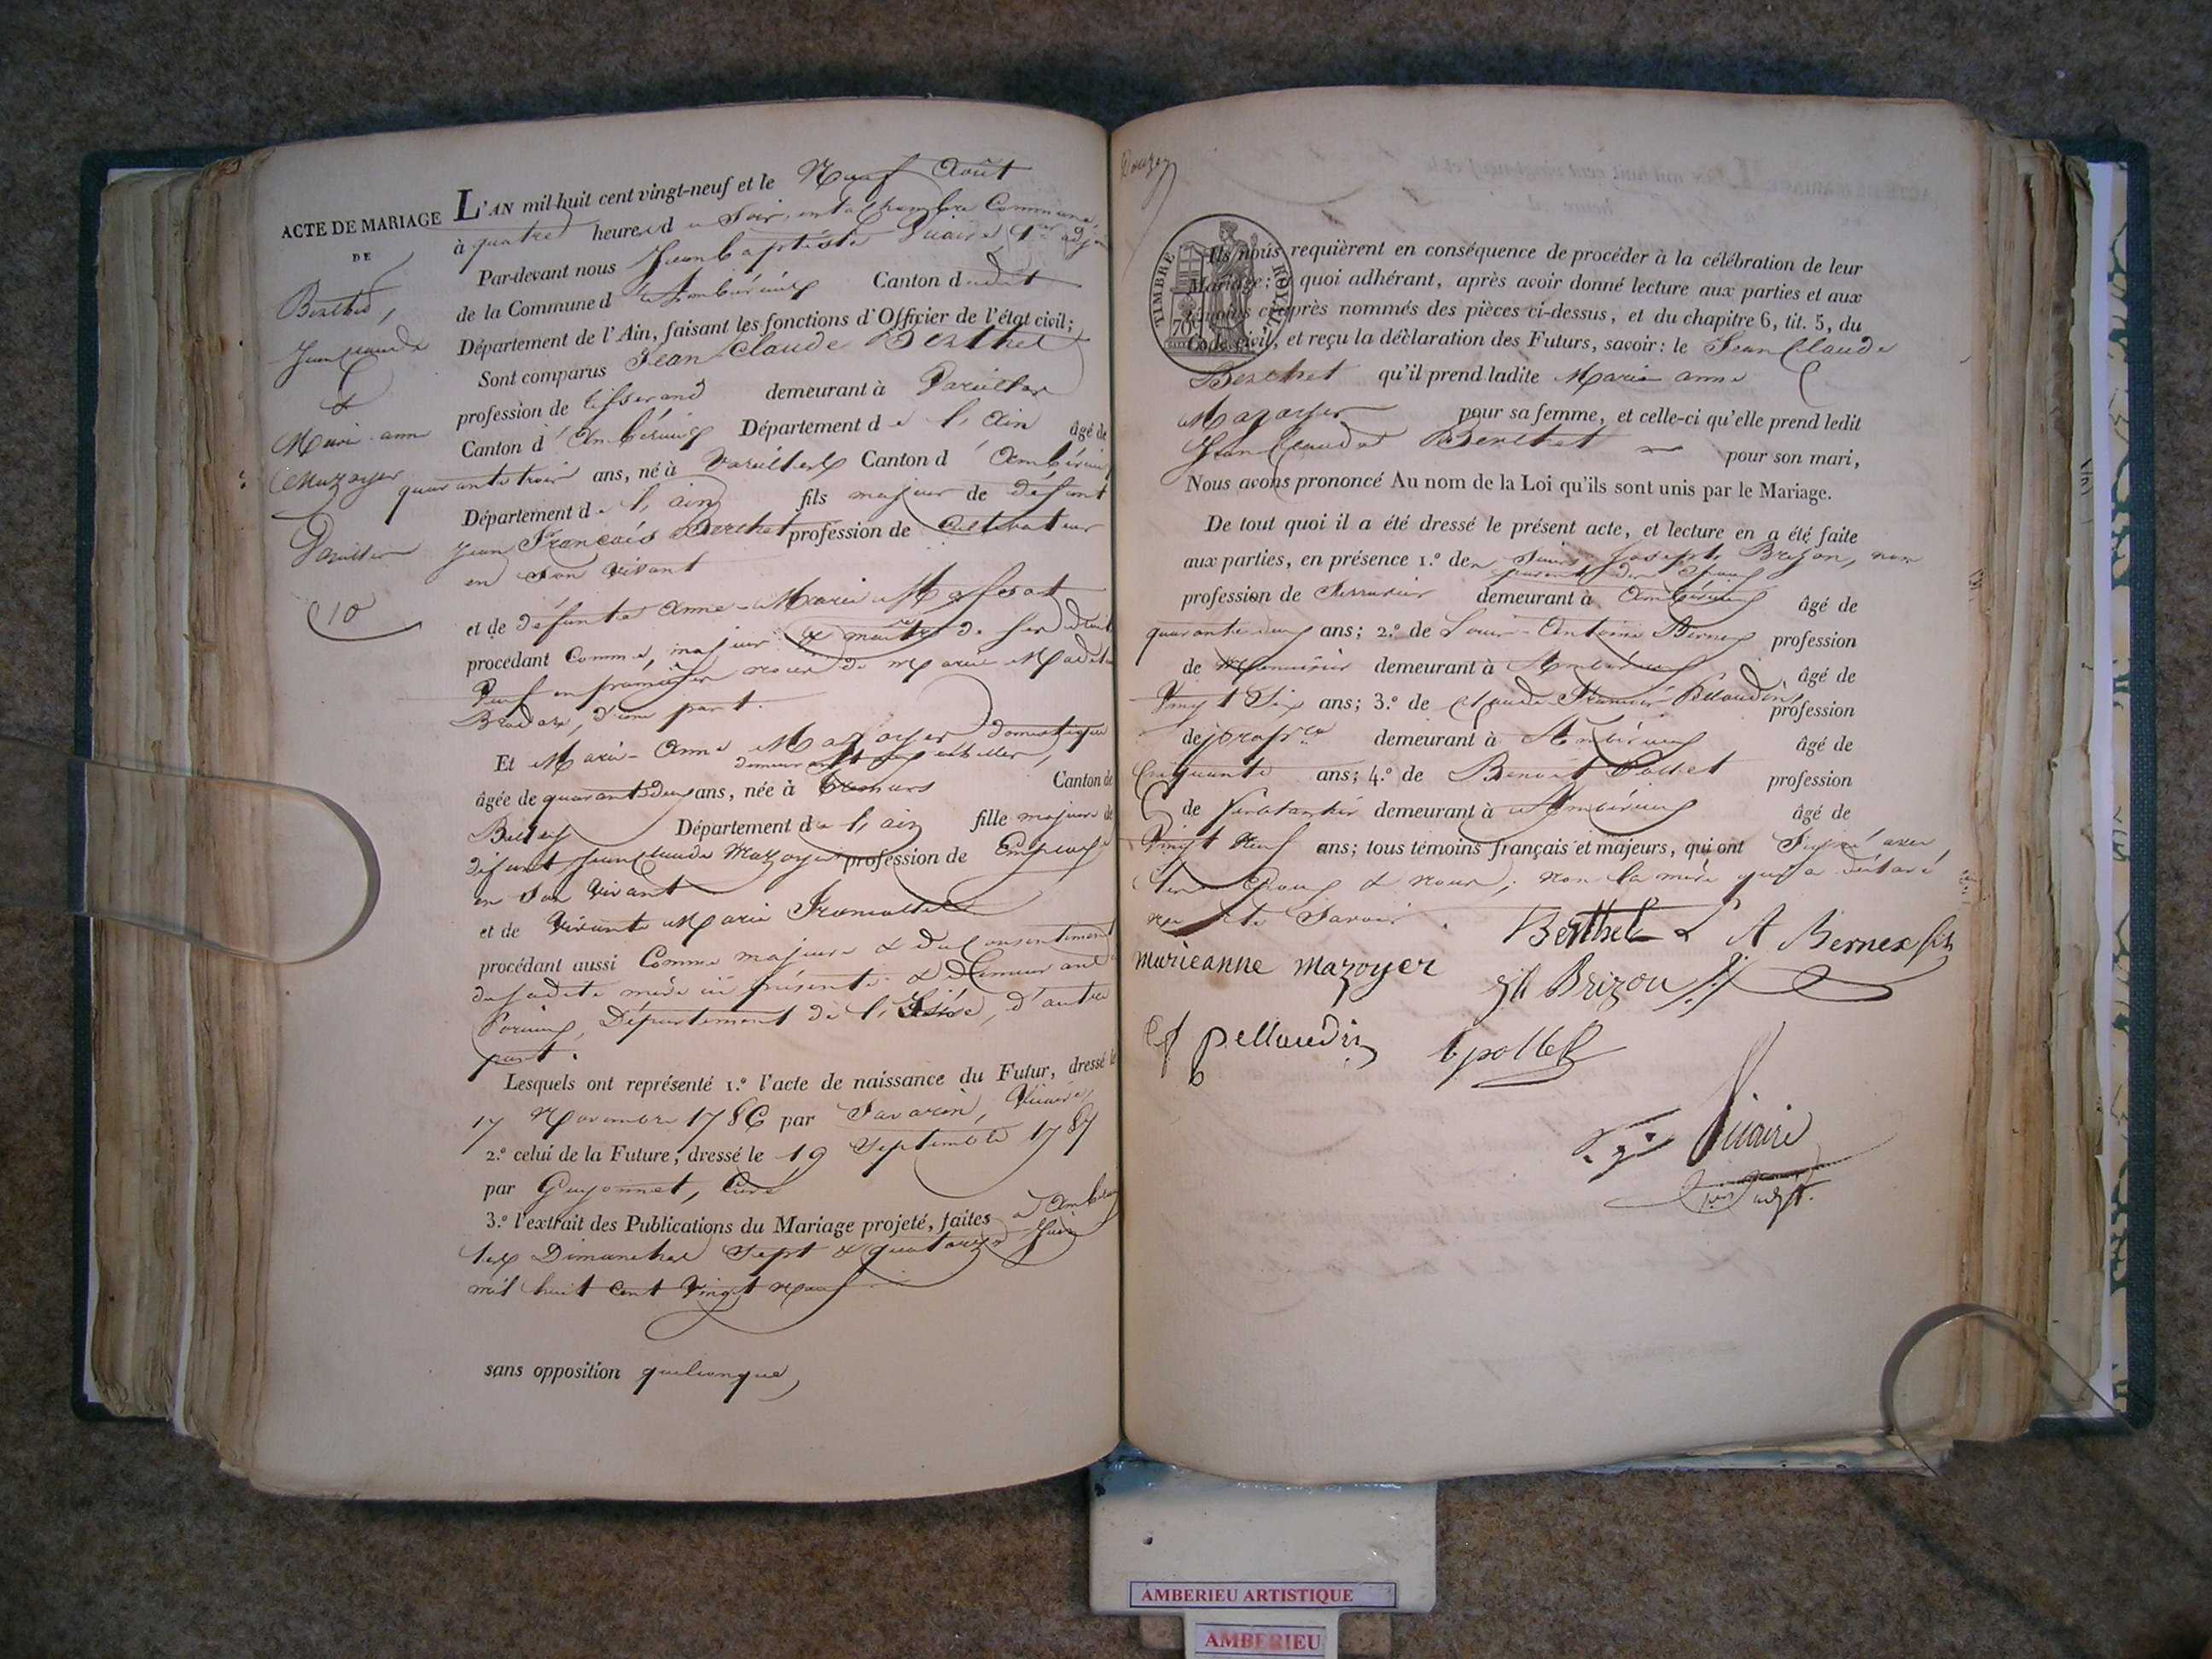 ACTE DE MARIAGE
DE
Berthet,
Jean Claude
&
Marie anne
Mazoyer
Vareilles
10
L'AN mil huit cent vingt-neuf et le Neuf Août
à quatre heures du Soir, en la chambre Commune,
Par-devant nous Jean baptiste Vicaire, 1er adj
de la Commune d'Ambérieux Canton dudit
Département de l'Ain, faisant les fonctions d'Officier de l'état civil;
Sont comparus Jean Claude Berthet
profession de tisserand demeurant à Vareilles
Canton d'Ambérieux Département de l'Ain âgé de
quarante trois ans, né à Vareilles Canton d'Ambérieux
Département de l'ain fils majeur de défunt
Jean François Berthet profession de Cultivateur
en Son vivant
et de défunte Anne-Marie
procédant Comme majeur & maitre de ses droits
Veuf en premières noces de Marie
d'une part.
Et Marie-Anne Mazoyer domestique
demeurant
âgée de quarante deux ans, née à Canton de
Belley Département de l'ain fille majeure de
défunt Jean Claude Mazoyer profession de
en Son Vivant
et de Vivante Marie
procédant aussi Comme majeure & du Consentement
de sadite mère ici présente & Demeurant
Département de l'Isère, d'autre
part.
Lesquels ont représenté 1.º l'acte de naissance du Futur, dressé le
17 Novembre 1786 par Savarin, Vicaire,
2.º celui de la Future, dressé le 19 Septembre 1787
par Guyonnet, Curé
3.º l'extrait des Publications du Mariage projeté, faites
les Dimanches Sept & quatorze
mil huit Cent Vingt Neuf
sans opposition quelconque,
TIMBRE ROYAL
70
Ils nous requièrent en conséquence de procéder à la célébration de leur
Mariage: à quoi adhérant, après avoir donné lecture aux parties et aux
témoins ci-après nommés des pièces ci-dessus, et du chapitre 6, tit. 5, du
Code civil, et reçu la déclaration des Futurs, savoir: le Jean Claude
Berthet qu'il prend ladite Marie anne
Mazoyer pour sa femme, et celle-ci qu'elle prend ledit
Jean Claude Berthet pour son mari,
Nous avons prononcé Au nom de la Loi qu'ils sont unis par le Mariage.
De tout quoi il a été dressé le présent acte, et lecture en a été faite
aux parties, en présence 1.º de Joseph Brizon, non
parent des Epoux
profession de Serrurier demeurant à Ambérieux âgé de
quarante deux ans; 2.º de Louis-Antoine Bernex profession
de Menuisier demeurant à Ambérieux âgé de
Vingt Six ans; 3.º de Claude François Pellaudin, profession
de demeurant à Ambérieux âgé de
Cinquante ans; 4.º de Benoit Pollet profession
de ferblantier demeurant à Ambérieux âgé de
Vingt Neuf ans; tous témoins français et majeurs, qui ont Signé avec
les Epoux & nous; non la mère qui a déclaré
ne le Savoir.
Berthet L A Bernex fils
marieanne mazoyer
Brizon
Cf pellaudin
b pollet
Vicaire
1er adjt.
AMBERIEU ARTISTIQUE
AMBERIEU